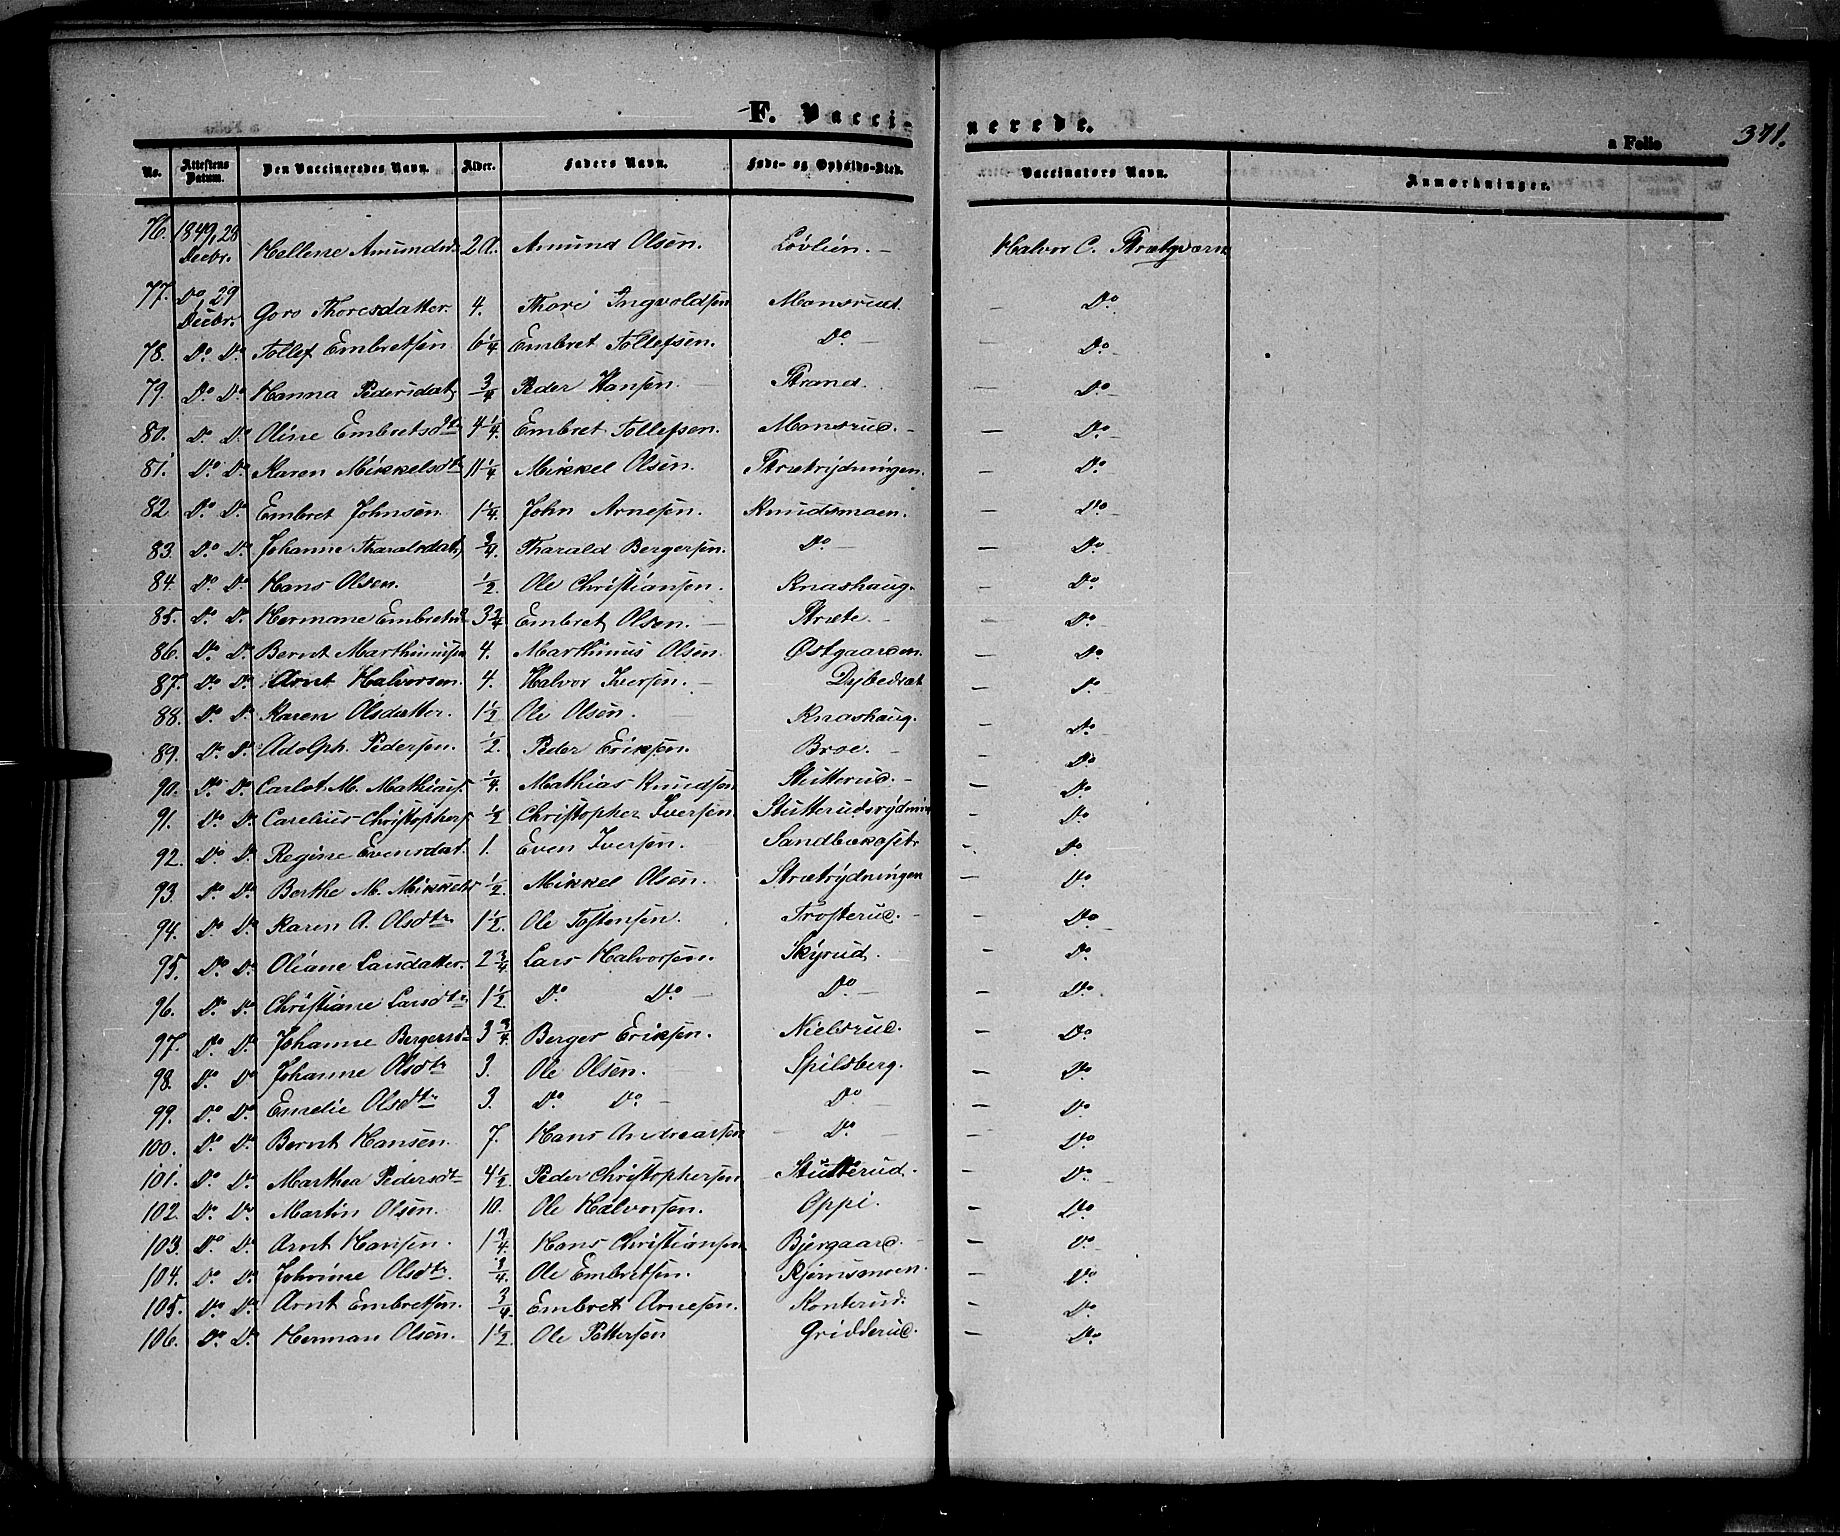 F. Vacci-nerede.
a Folio 371.
No. Attestens Datum. Den Vaccineredes Navn. Alder. Faders Navn. Føde- og Opholds-Sted. Vaccinators Navn. Anmærkninger.
76. 1849, 28 Decbr. Hellene Amundsd. 2 A. Amund Olsen. Løvlien. - Halvor C. Strætqvern
77. Do 29 Decbr. Goro Thoresdatter. 4. Thore Ingvoldsen Monsrud. - Do
78. Do. Do Tollef Embretsen 6 1/4 Embret Tollefsen. Do - - Do.
79. Do. Do Hanna Pedersdat 3/4 Peder Hansen. - Strand. - Do.
80. Do. Do Oline Embretsdtr 4 1/4. Embret Tollefsen. Monsrud. - - Do.
81. Do. Do. Karen Mikkelsdtr 11 1/4 Mikkel Olsen. Strætrydningen. - Do.
82 Do. Do. Embret Johnsen 1 1/4. John Arnesen. Knudsmoen. - Do
83. Do. Do. Johanne Tharalsdat 3/4. Tharald Bergersen. Do - - Do.
84. Do. Do. Hans Olsen. 1/2 Ole Christiansen. Knashaug. - Do
85. Do. Do. Hermane Embretsd 3 3/4 Embret Olsen. - Stræte. - - Do.
86. Do. Do. Bernt Marthinusen 4. Marthinus Olsen. Østgaarden. - Do
87. Do. Do. Arnt Halvorsen. 4. Halvor Iversen. - Dybedræt - Do.
88. Do. Do. Karen Olsdatter. 1 1/2 Ole Olsen. - Knashaug. - Do.
89. Do. Do. Adolph Pedersen. 1/2. Peder Eriksen. Broe. - - Do.
90. Do. Do. Carlot M. Mathias 1/4. Mathias Knudsen Stutterud. - - Do.
91. Do. Do. Carelius Christophers 1/2 Christopher Iversen Stutterudsrydnin - Do.
92. Do. Do. Regine Evensdat. 1. Even Iversen. - Sandbækset - Do.
93. Do. Do. Berthe M. Mikkels 1/2. Mikkel Olsen. Strætrydningen - Do.
94. Do. Do. Karen A. Olsdtr 1 1/2. Ole Tostensen. Trosterud. - - Do.
95. Do Do. Oliane Larsdatter. 2 3/4 Lars Halvorsen. Skyrud. - Do.
96. Do. Do. Christiane Larsdtr 1 1/2. Do. Do. - Do. - - Do.
97. Do. Do. Johanne Bergersd 3 3/4. Berger Eriksen. Nielsrud. - Do.
98. Do. Do Johanne Olsdtr 3. Ole Olsen. Spilsberg. - Do.
99. Do. Do. Emelie Olsdtr 3. Do. Do. - Do - - Do.
100. Do. Do. Bernt Hansen. 7. Hans Andreassen - Do. - - Do.
101. Do. Do. Marthea Pedersdtr 4 1/2 Peder Christophersen Stutterud. - Do.
102. Do. Do. Martin Olsen. 10. Ole Halvorsen. Oppi. - Do.
103. Do. Do. Arnt Hansen. 1 3/4. Hans Christiansen Bjergaard. - - Do.
104. Do. Do. Johrine Olsdtr. 3/4. Ole Embretsen. Kjernsmoen. - Do.
105. Do. Do. Arnt Embretsen. 3/4 Embret Arnesen. Konterud. - Do.
106. Do. Do. Herman Olsen. 1 1/2. Ole Pettersen Gridderud. - Do.